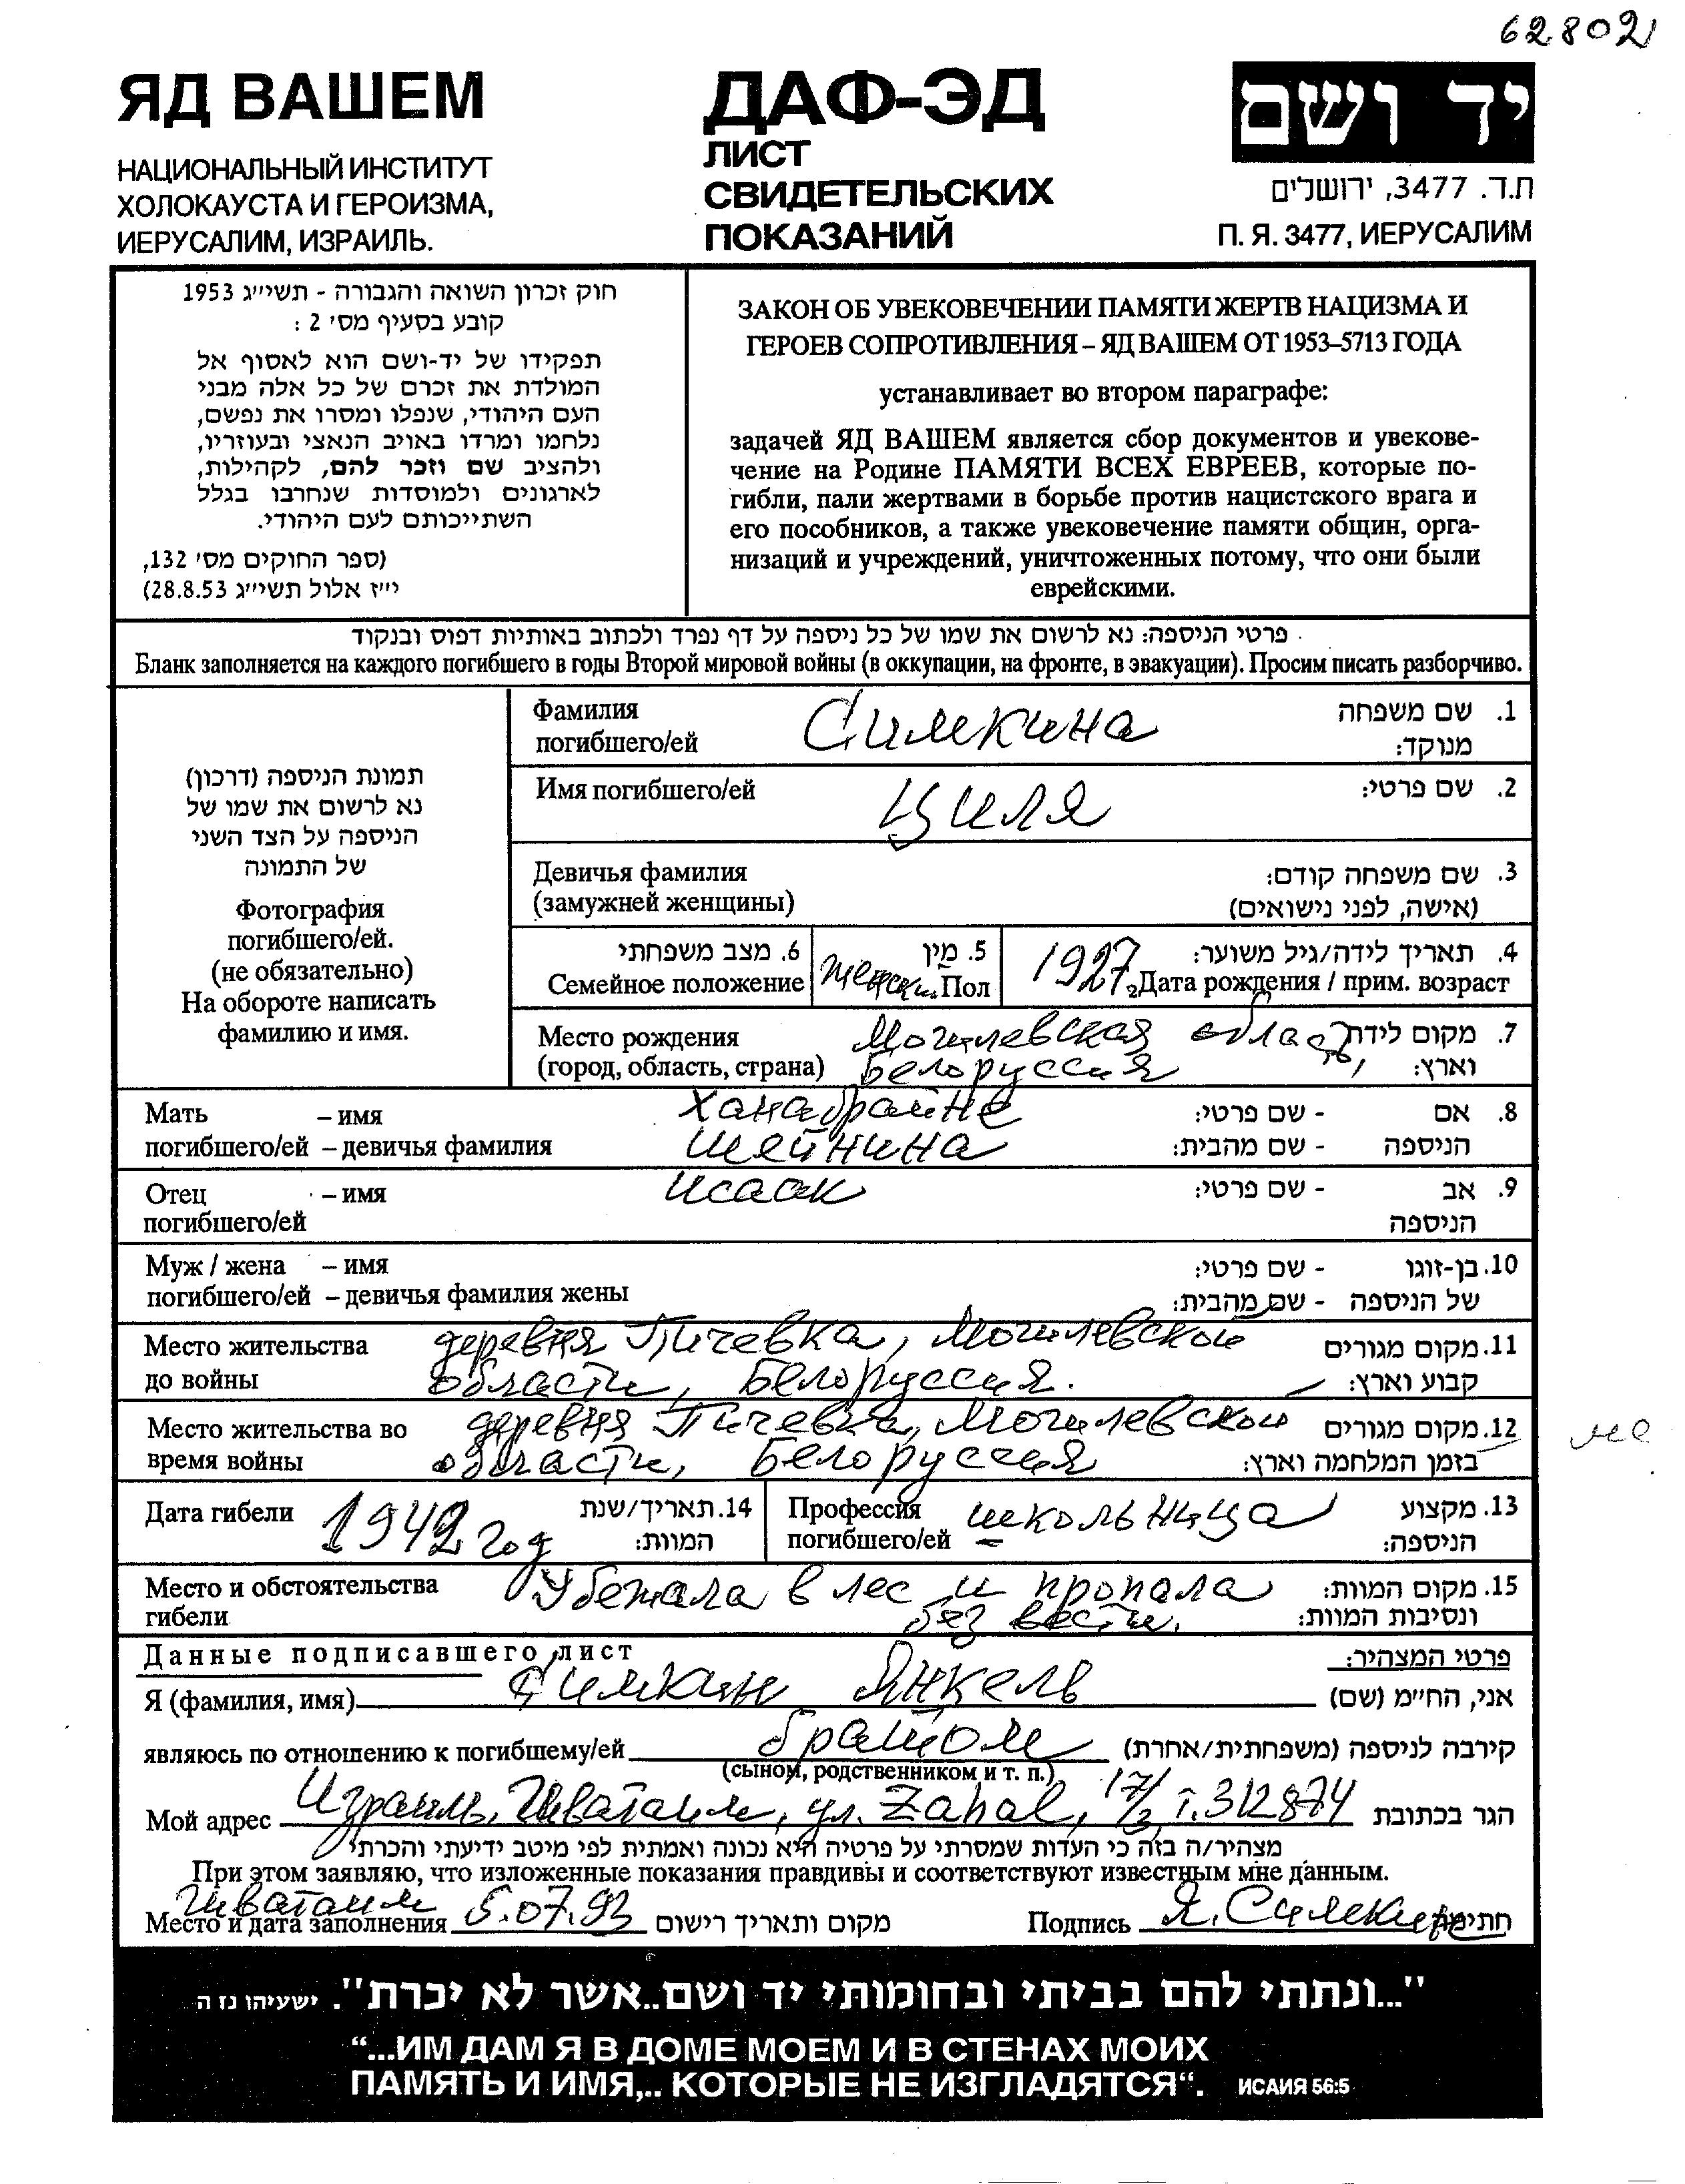 62802
ЯД ВАШЕМ
НАЦИОНАЛЬНЫЙ ИНСТИТУТ
ХОЛОКАУСТА И ГЕРОИЗМА,
ИЕРУСАЛИМ, ИЗРАИЛЬ.
ДАФ-ЭД
ЛИСТ
СВИДЕТЕЛЬСКИХ
ПОКАЗАНИЙ
יד ושם
ת.ד. 3477, ירושלים
П. Я. 3477, ИЕРУСАЛИМ
חוק זכרון השואה והגבורה - תשי״ג 1953
קובע בסעיף מס׳ 2 :
תפקידו של יד-ושם הוא לאסוף אל
המולדת את זכרם של כל אלה מבני
העם היהודי, שנפלו ומסרו את נפשם,
נלחמו ומרדו באויב הנאצי ובעוזריו,
ולהציב שם וזכר להם, לקהילות,
לארגונים ולמוסדות שנחרבו בגלל
השתייכותם לעם היהודי.
(ספר החוקים מס׳ 132,
י״ז אלול תשי״ג 28.8.53)
ЗАКОН ОБ УВЕКОВЕЧЕНИИ ПАМЯТИ ЖЕРТВ НАЦИЗМА И
ГЕРОЕВ СОПРОТИВЛЕНИЯ – ЯД ВАШЕМ ОТ 1953–5713 ГОДА
устанавливает во втором параграфе:
задачей ЯД ВАШЕМ является сбор документов и увекове-
чение на Родине ПАМЯТИ ВСЕХ ЕВРЕЕВ, которые по-
гибли, пали жертвами в борьбе против нацистского врага и
его пособников, а также увековечение памяти общин, орга-
низаций и учреждений, уничтоженных потому, что они были
еврейскими.
פרטי הניספה: נא לרשום את שמו של כל ניספה על דף נפרד ולכתוב באותיות דפוס ובנקוד
Бланк заполняется на каждого погибшего в годы Второй мировой войны (в оккупации, на фронте, в эвакуации). Просим писать разборчиво.
תמונת הניספה (דרכון)
נא לרשום את שמו של
הניספה על הצד השני
של התמונה
Фотография
погибшего/ей.
(не обязательно)
На обороте написать
фамилию и имя.
Фамилия Симкина 1. שם משפחה
погибшего/ей מנוקד:
Имя погибшего/ей Циля 2. שם פרטי:
Девичья фамилия 3. שם משפחה קודם:
(замужней женщины) (אישה, לפני נישואים)
6. מצב משפחתי 5. מין 4. תאריך לידה/גיל משוער:
Семейное положение женски. Пол 1927г. Дата рождения / прим. возраст
Место рождения Могилевская область, 7. מקום לידה
(город, область, страна) Белоруссия וארץ:
Мать – имя Ханабрайне 8. אם - שם פרטי:
погибшего/ей – девичья фамилия Шейнина הניספה - שם מהבית:
Отец – имя Исаак 9. אב - שם פרטי:
погибшего/ей הניספה
Муж / жена – имя 10. בן-זוגו - שם פרטי:
погибшего/ей – девичья фамилия жены של הניספה - שם מהבית:
Место жительства деревня Пичевка, Могилевской 11. מקום מגורים
до войны области, Белоруссия. קבוע וארץ:
Место жительства во деревня Пичевка, Могилевской 12. מקום מגורים
время войны области, Белоруссия בזמן המלחמה וארץ:
Дата гибели 1942 год 14. תאריך/שנת המוות:
Профессия школьница 13. מקצוע
погибшего/ей הניספה:
Место и обстоятельства Убежала в лес и пропала 15. מקום המוות:
гибели без вести. ונסיבות המוות:
Данные подписавшего лист פרטי המצהיר:
Я (фамилия, имя) Симкин Янкель אני, הח״מ (שם)
являюсь по отношению к погибшему/ей братом קירבה לניספה (משפחתית/אחרת)
(сыном, родственником и т. п.)
Мой адрес Израиль, Гиватаим, ул. Zahal, 17/2, т. 312874 הגר בכתובת
מצהיר/ה בזה כי העדות שמסרתי על פרטיה היא נכונה ואמתית לפי מיטב ידיעתי והכרתי
При этом заявляю, что изложенные показания правдивы и соответствуют известным мне данным.
Гиватаим
Место и дата заполнения 5.07.93 מקום ותאריך רישום Подпись Я. Симкин חתימה
"...ונתתי להם בביתי ובחומותי יד ושם..אשר לא יכרת". ישעיהו נז ה
“...ИМ ДАМ Я В ДОМЕ МОЕМ И В СТЕНАХ МОИХ
ПАМЯТЬ И ИМЯ,.. КОТОРЫЕ НЕ ИЗГЛАДЯТСЯ“. ИСАИЯ 56:5